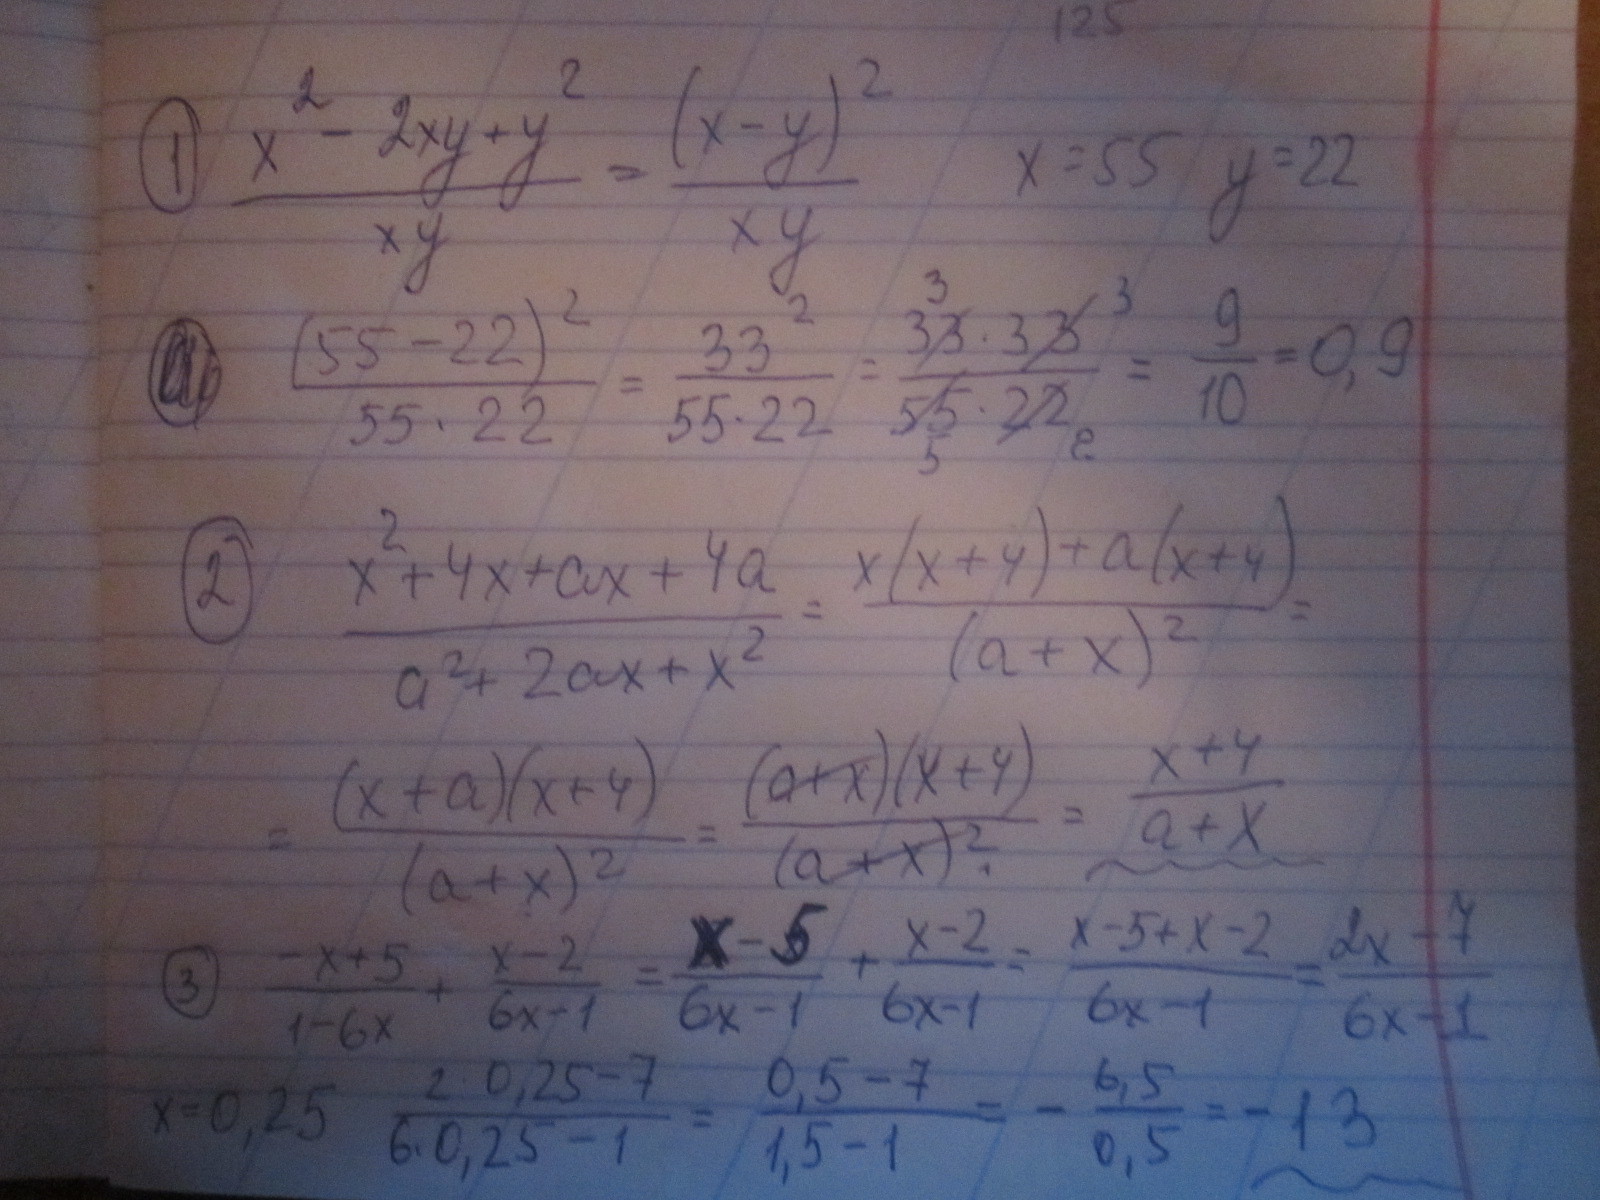 125
① (x² - 2xy + y²)/(xy) = (x - y)²/(xy) x = 55 y = 22
(55 - 22)²/(55 · 22) = 33²/(55 · 22) = (33 · 33)/(55 · 22) 3 3 5 2 = 9/10 = 0,9
② (x² + 4x + ax + 4a)/(a² + 2ax + x²) = (x(x + 4) + a(x + 4))/(a + x)² =
= ((x + a)(x + 4))/(a + x)² = ((a + x)(x + 4))/(a + x)² = (x + 4)/(a + x)
③ (-x + 5)/(1 - 6x) + (x - 2)/(6x - 1) = (x - 5)/(6x - 1) + (x - 2)/(6x - 1) = (x - 5 + x - 2)/(6x - 1) = (2x - 7)/(6x - 1)
x = 0,25 (2 · 0,25 - 7)/(6 · 0,25 - 1) = (0,5 - 7)/(1,5 - 1) = - 6,5/0,5 = -13